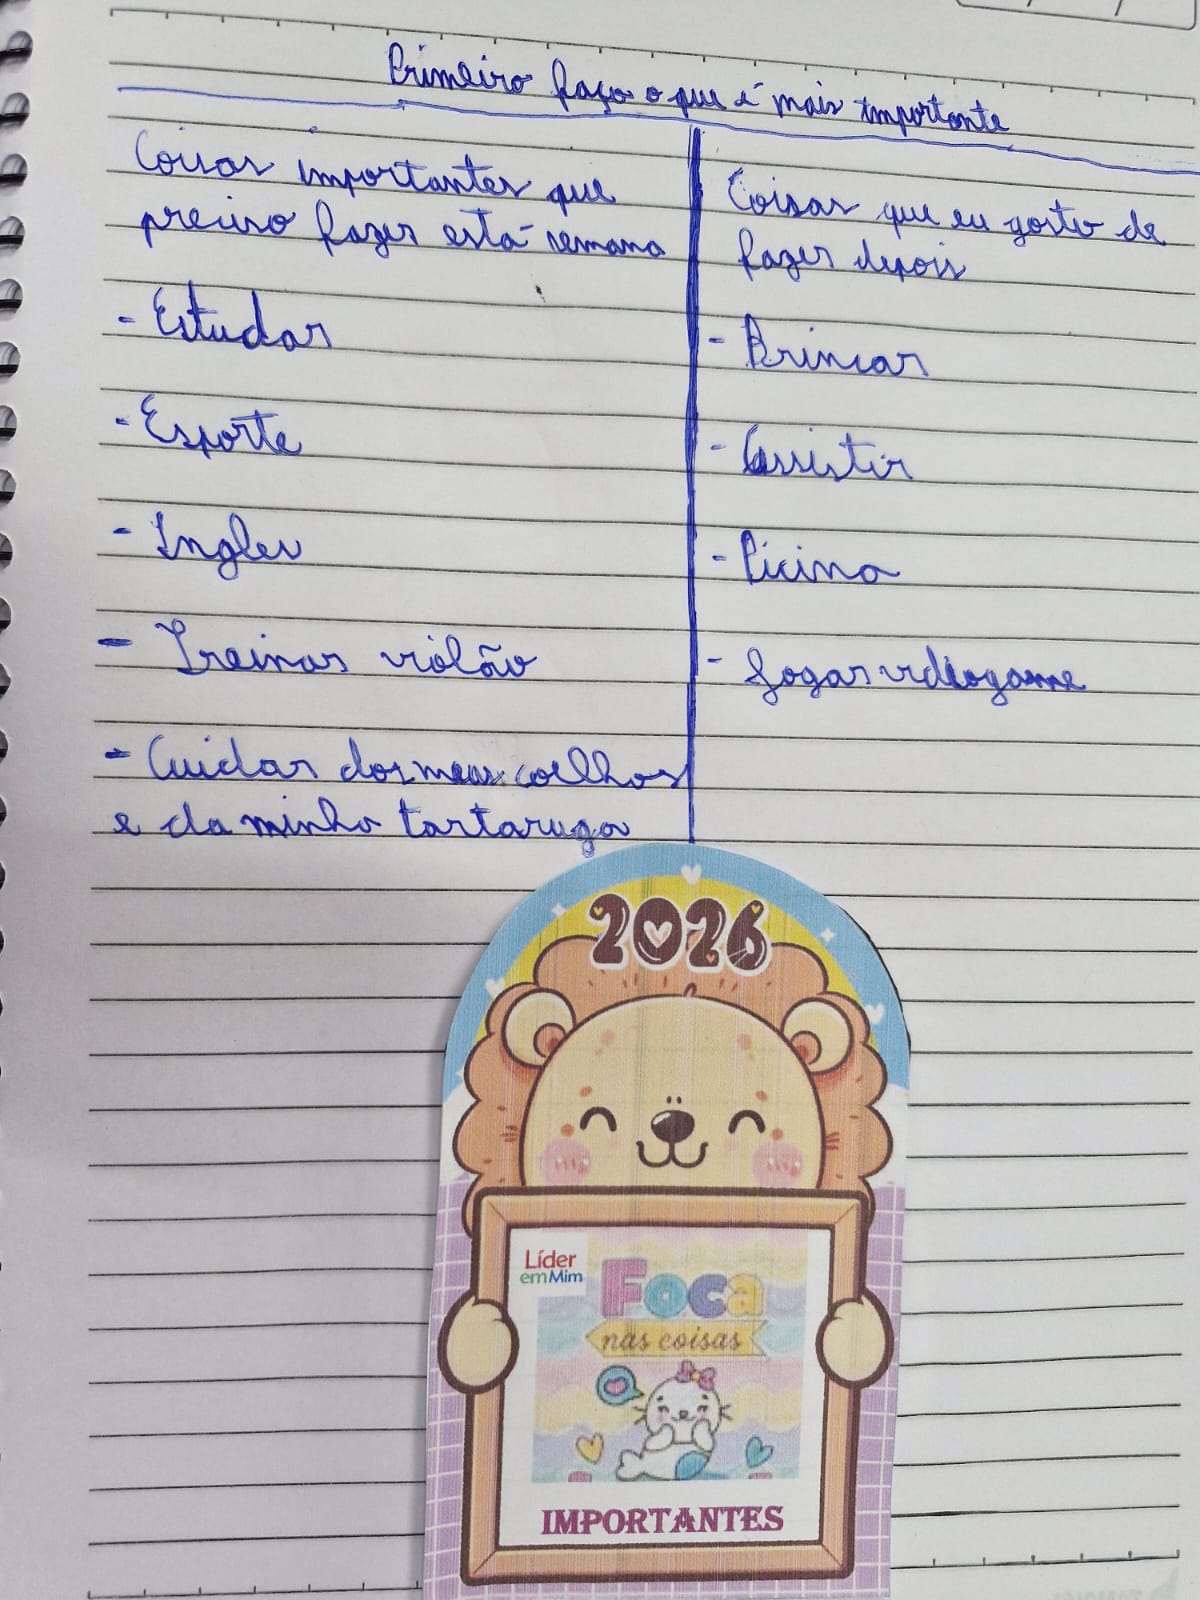 Primeiro faço o que é mais importante
Coisas importantes que
preciso fazer está semana
- Estudar
- Esporte
- Ingles
- Treinar violão
- Cuidar dos meus coelhos
e da minha tartaruga
Coisas que eu gosto de
fazer depois
- Brincar
- Assistir
- Picina
- Jogar videogame
2026
Líder
em Mim
Foca
nas coisas
IMPORTANTES